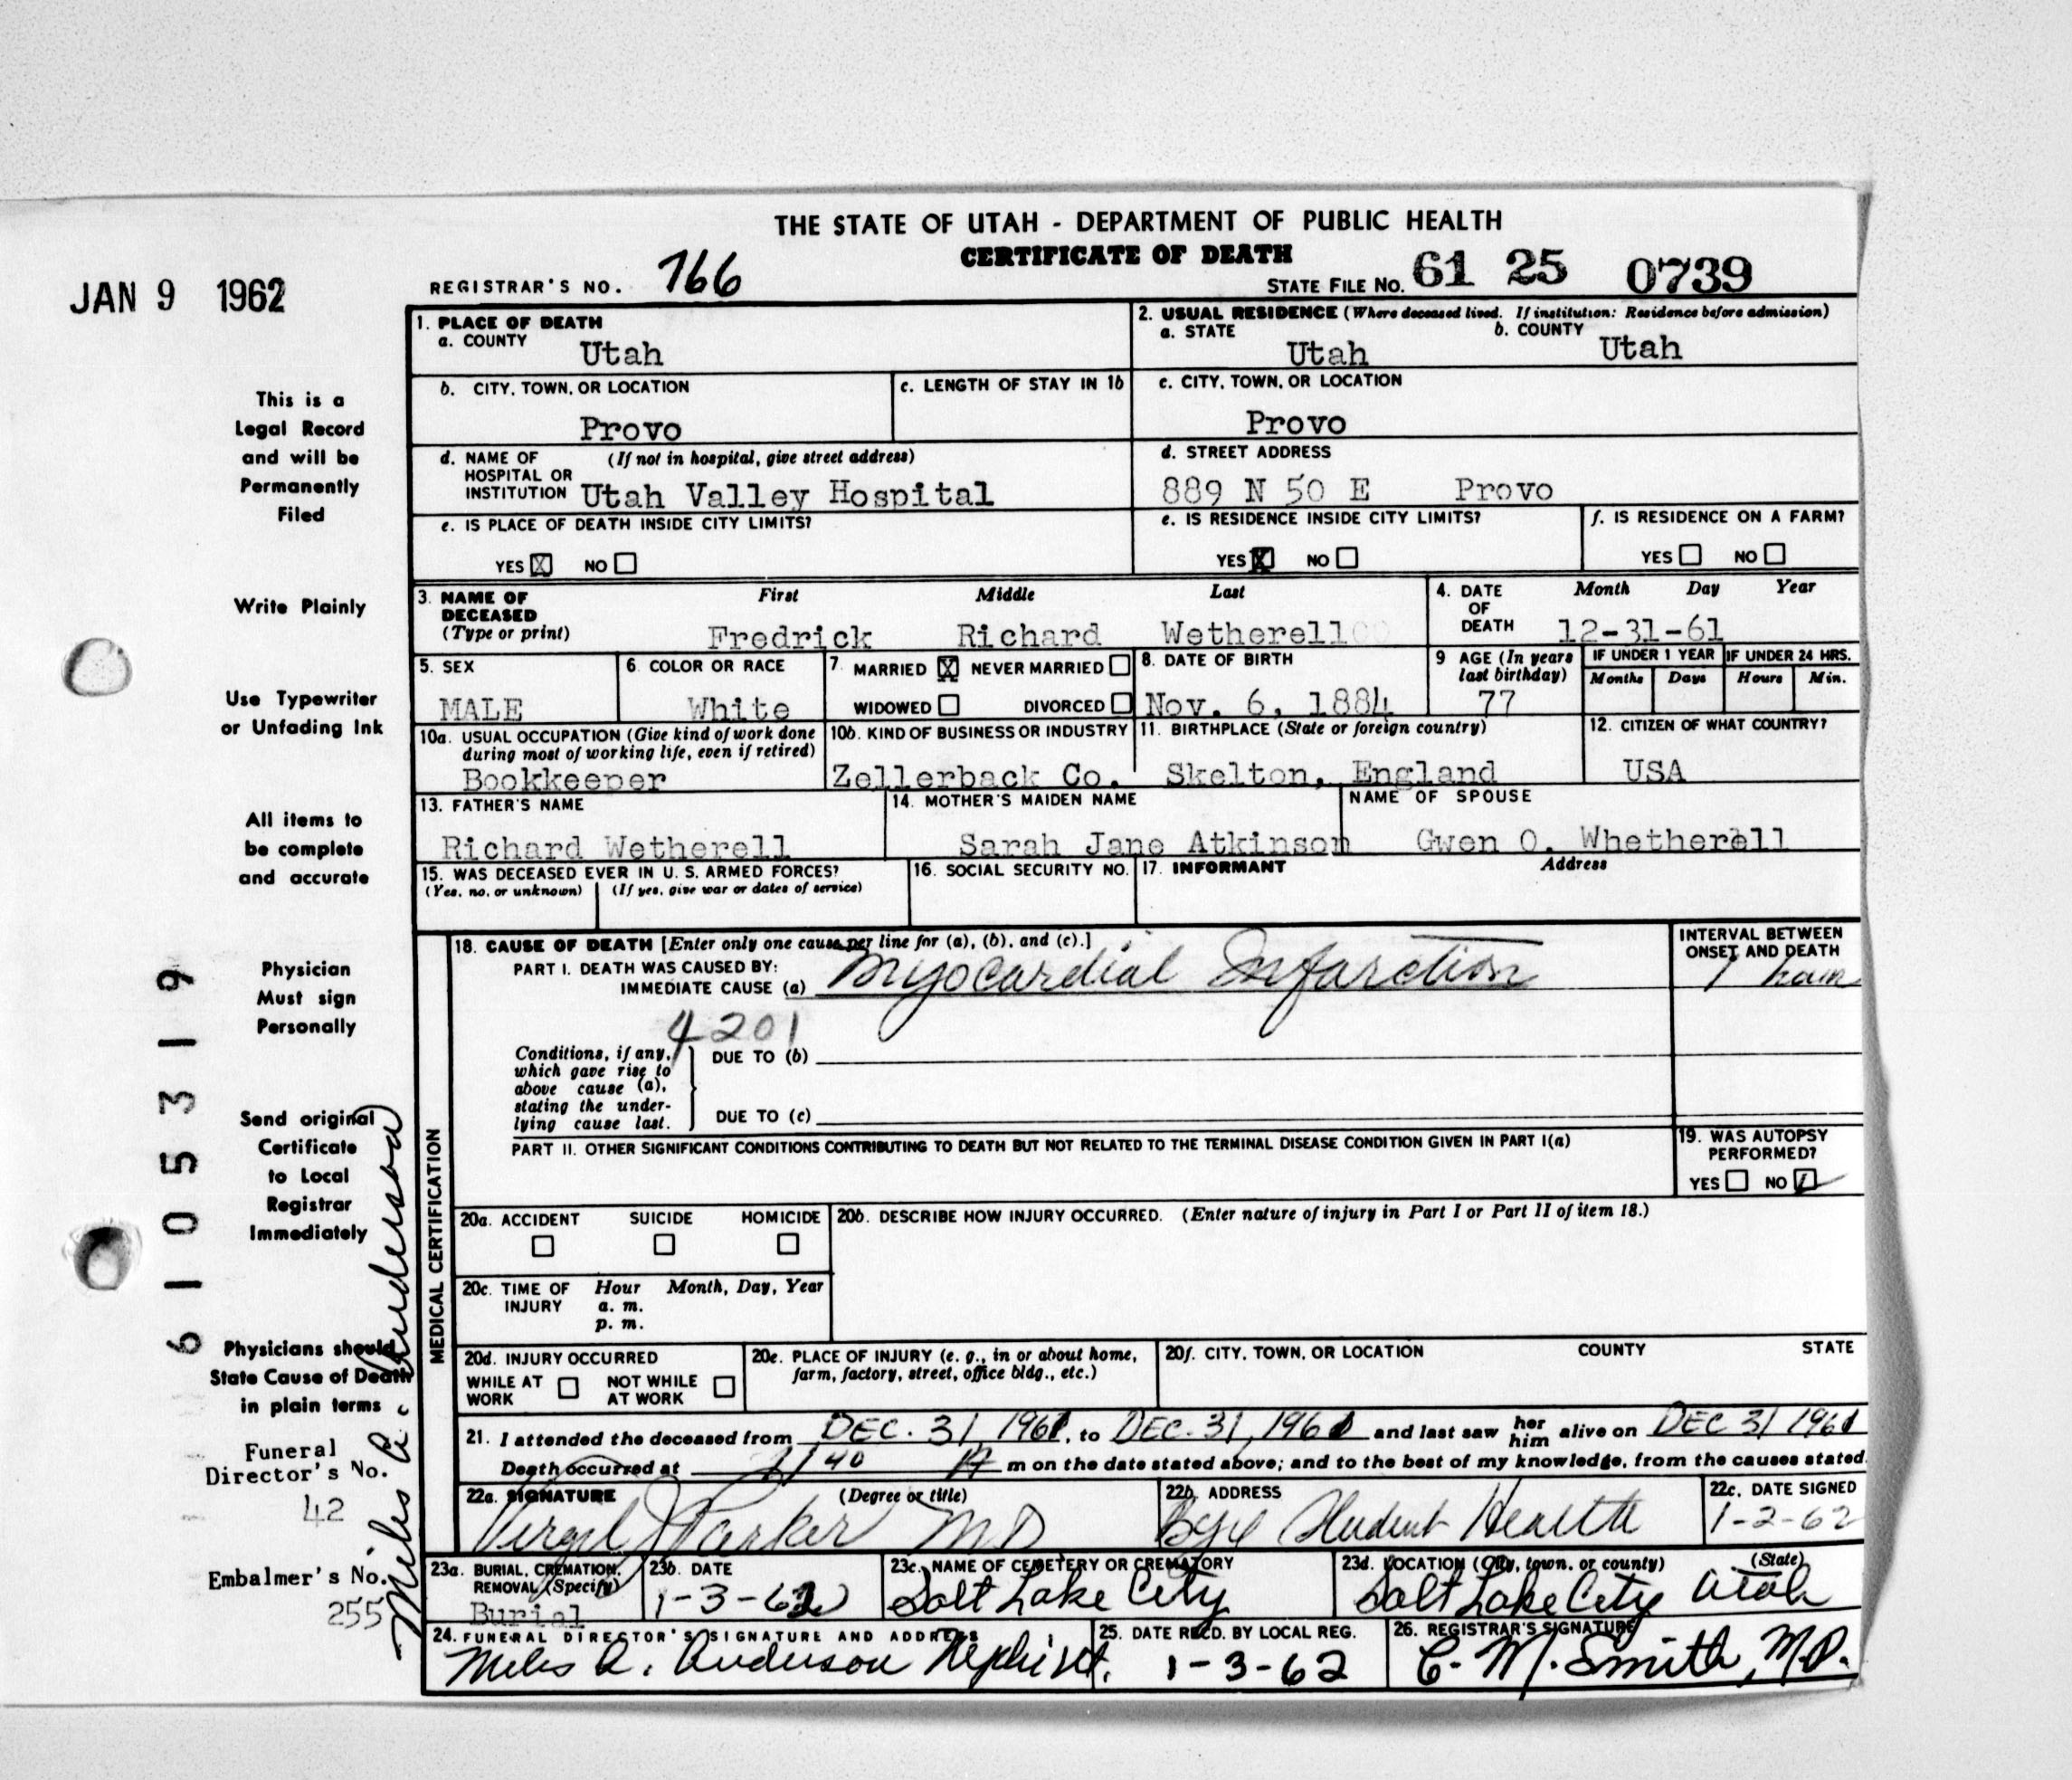 THE STATE OF UTAH - DEPARTMENT OF PUBLIC HEALTH
CERTIFICATE OF DEATH
JAN 9 1962
REGISTRAR'S NO. 766
STATE FILE NO. 61 25 0739
1. PLACE OF DEATH
a. COUNTY Utah
2. USUAL RESIDENCE (Where deceased lived. If institution: Residence before admission)
a. STATE Utah b. COUNTY Utah
b. CITY, TOWN, OR LOCATION Provo
c. LENGTH OF STAY IN 1b
c. CITY, TOWN, OR LOCATION Provo
d. NAME OF HOSPITAL OR INSTITUTION (If not in hospital, give street address) Utah Valley Hospital
d. STREET ADDRESS
889 N 50 E Provo
e. IS PLACE OF DEATH INSIDE CITY LIMITS?
YES X NO
e. IS RESIDENCE INSIDE CITY LIMITS?
YES X NO
f. IS RESIDENCE ON A FARM?
YES NO
3. NAME OF DECEASED (Type or print)
First Middle Last
Fredrick Richard Wetherell
4. DATE OF DEATH Month Day Year
12-31-61
5. SEX
MALE
6. COLOR OR RACE
White
7. MARRIED X NEVER MARRIED
WIDOWED DIVORCED
8. DATE OF BIRTH
Nov. 6, 1884
9 AGE (In years last birthday)
77
IF UNDER 1 YEAR
Months Days
IF UNDER 24 HRS.
Hours Min.
10a. USUAL OCCUPATION (Give kind of work done during most of working life, even if retired)
Bookkeeper
10b. KIND OF BUSINESS OR INDUSTRY
Zellerback Co.
11. BIRTHPLACE (State or foreign country)
Skelton, England
12. CITIZEN OF WHAT COUNTRY?
USA
13. FATHER'S NAME
Richard Wetherell
14. MOTHER'S MAIDEN NAME
Sarah Jane Atkinson
NAME OF SPOUSE
Gwen O. Whetherell
15. WAS DECEASED EVER IN U. S. ARMED FORCES?
(Yes, no, or unknown) (If yes, give war or dates of service)
16. SOCIAL SECURITY NO.
17. INFORMANT Address
MEDICAL CERTIFICATION
18. CAUSE OF DEATH [Enter only one cause per line for (a), (b), and (c).]
PART I. DEATH WAS CAUSED BY:
IMMEDIATE CAUSE (a) Myocardial Infarction
INTERVAL BETWEEN ONSET AND DEATH
1 hour
4201
Conditions, if any, which gave rise to above cause (a), stating the underlying cause last.
DUE TO (b)
DUE TO (c)
PART II. OTHER SIGNIFICANT CONDITIONS CONTRIBUTING TO DEATH BUT NOT RELATED TO THE TERMINAL DISEASE CONDITION GIVEN IN PART I(a)
19. WAS AUTOPSY PERFORMED?
YES NO
20a. ACCIDENT SUICIDE HOMICIDE
20b. DESCRIBE HOW INJURY OCCURRED. (Enter nature of injury in Part I or Part II of item 18.)
20c. TIME OF INJURY Hour Month, Day, Year
a. m.
p. m.
20d. INJURY OCCURRED
WHILE AT WORK NOT WHILE AT WORK
20e. PLACE OF INJURY (e. g., in or about home, farm, factory, street, office bldg., etc.)
20f. CITY, TOWN, OR LOCATION COUNTY STATE
21. I attended the deceased from DEC. 31, 1961, to DEC. 31, 1961 and last saw her him alive on DEC 31 1961
Death occurred at m on the date stated above; and to the best of my knowledge, from the causes stated.
22a. SIGNATURE (Degree or title)
Virgil J Parker MD
22b. ADDRESS
BYU Student Health
22c. DATE SIGNED
1-2-62
23a. BURIAL, CREMATION, REMOVAL (Specify)
Burial
23b. DATE
1-3-62
23c. NAME OF CEMETERY OR CREMATORY
Salt Lake City
23d. LOCATION (City, town, or county) (State)
Salt Lake City Utah
24. FUNERAL DIRECTOR'S SIGNATURE AND ADDRESS
Miles A. Anderson
25. DATE RECD. BY LOCAL REG.
1-3-62
26. REGISTRAR'S SIGNATURE
C. M. Smith, M.D.
This is a
Legal Record
and will be
Permanently
Filed
Write Plainly
Use Typewriter
or Unfading Ink
All items to
be complete
and accurate
Physician
Must sign
Personally
Send original
Certificate
to Local
Registrar
Immediately
Physicians should
State Cause of Death
in plain terms
Funeral
Director's No.
42
Embalmer's No.
255
Miles A. Anderson
6105319